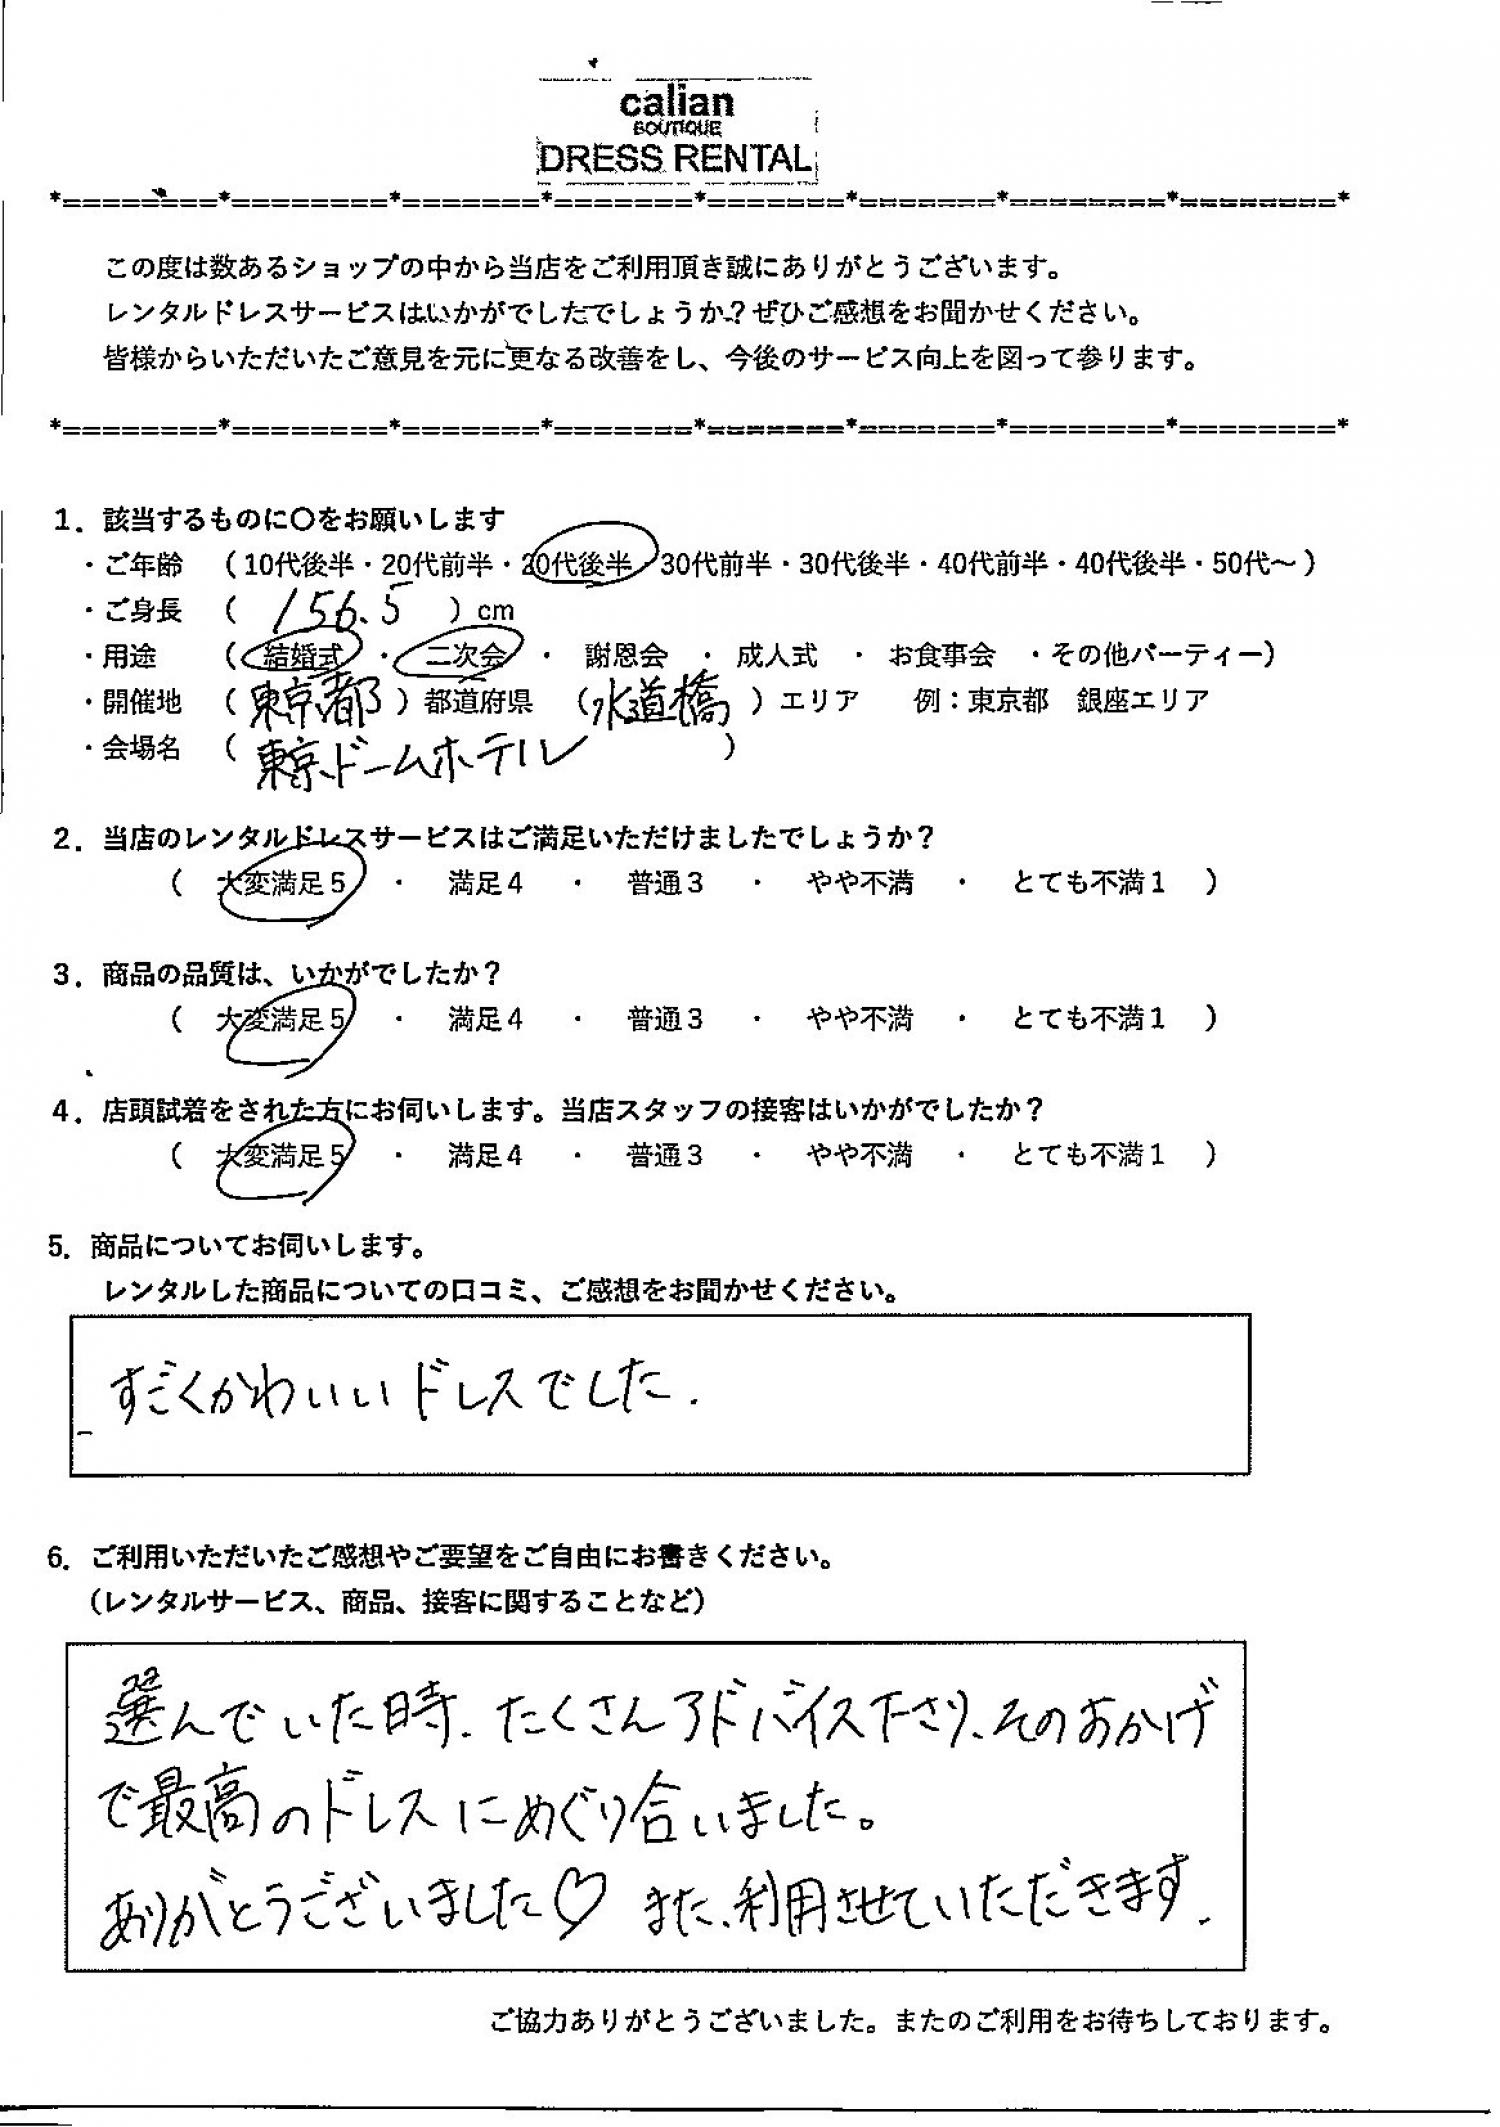 calian
BOUTIQUE
DRESS RENTAL
*========*========*=======*=======*=======*=======*========*========*
この度は数あるショップの中から当店をご利用頂き誠にありがとうございます。
レンタルドレスサービスはいかがでしたでしょうか？ぜひご感想をお聞かせください。
皆様からいただいたご意見を元に更なる改善をし、今後のサービス向上を図って参ります。
*========*========*=======*=======*=======*=======*========*========*
1．該当するものに〇をお願いします
・ご年齢 （10代後半・20代前半・20代後半・30代前半・30代後半・40代前半・40代後半・50代～）
・ご身長 （ 156.5 ）cm
・用途 （結婚式 ・ 二次会 ・ 謝恩会 ・ 成人式 ・ お食事会 ・その他パーティー）
・開催地 （ 東京都 ）都道府県 （水道橋 ）エリア 例：東京都 銀座エリア
・会場名 （ 東京ドームホテル ）
2．当店のレンタルドレスサービスはご満足いただけましたでしょうか？
（ 大変満足５ ・ 満足４ ・ 普通３ ・ やや不満 ・ とても不満１ ）
3．商品の品質は、いかがでしたか？
（ 大変満足５ ・ 満足４ ・ 普通３ ・ やや不満 ・ とても不満１ ）
4．店頭試着をされた方にお伺いします。当店スタッフの接客はいかがでしたか？
（ 大変満足５ ・ 満足４ ・ 普通３ ・ やや不満 ・ とても不満１ ）
5．商品についてお伺いします。
レンタルした商品についての口コミ、ご感想をお聞かせください。
すごくかわいいドレスでした.
6．ご利用いただいたご感想やご要望をご自由にお書きください。
（レンタルサービス、商品、接客に関することなど）
選んでいた時、たくさんアドバイス下さり、そのおかげ
で最高のドレスにめぐり合いました。
ありがとうございました♡ また、利用させていただきます.
ご協力ありがとうございました。またのご利用をお待ちしております。